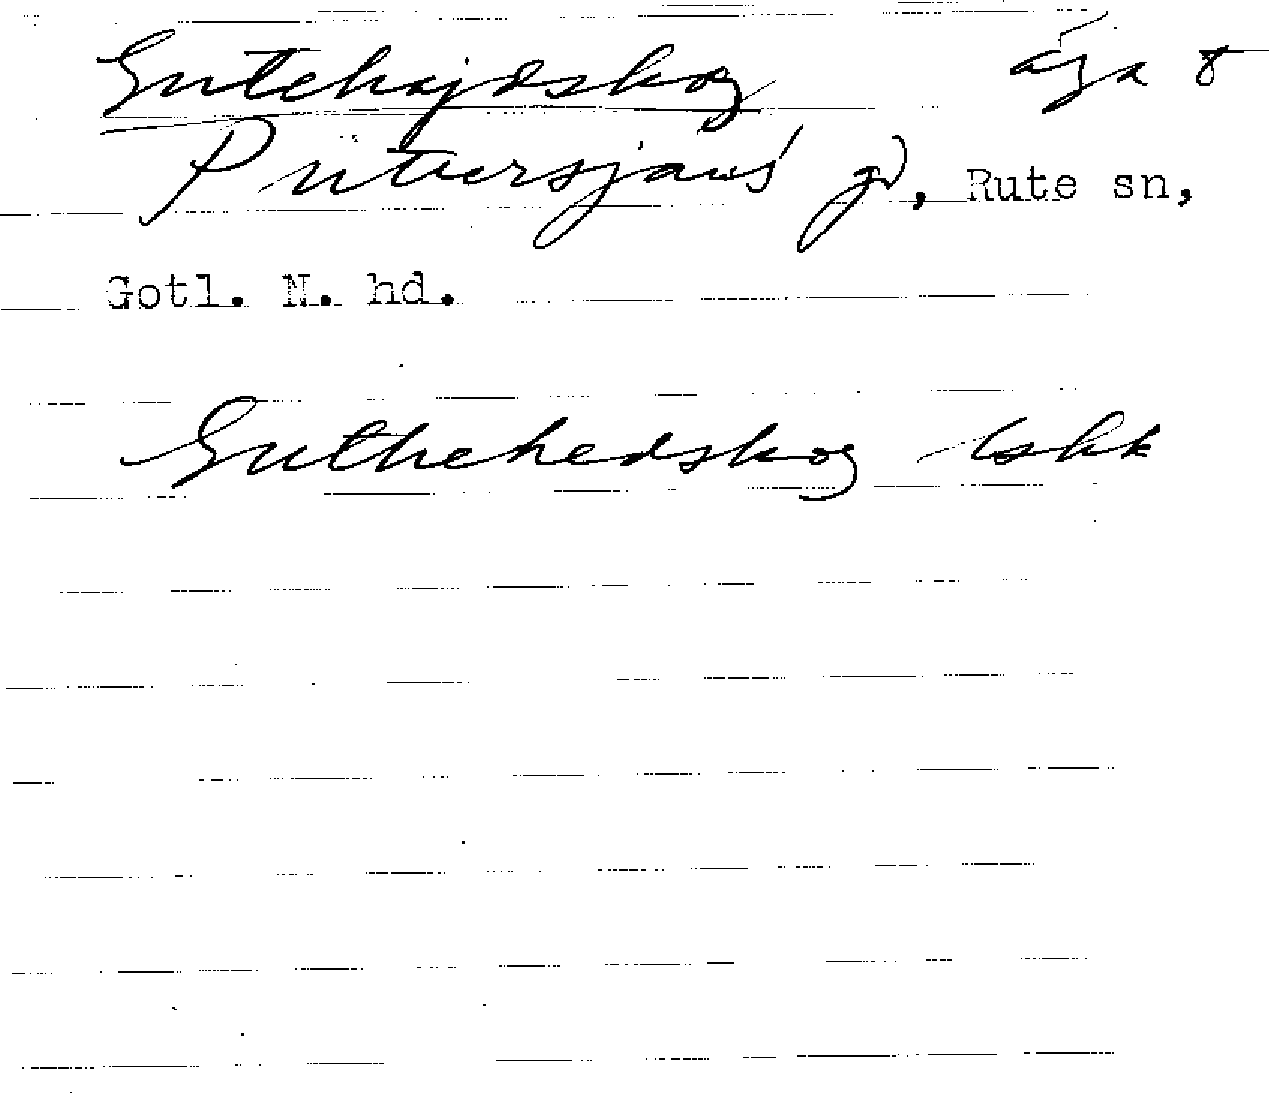 Gutehajdskog äga
Puttersjaus gd, Rute sn,
Gotl. N. hd.
Guthehedskog lskk